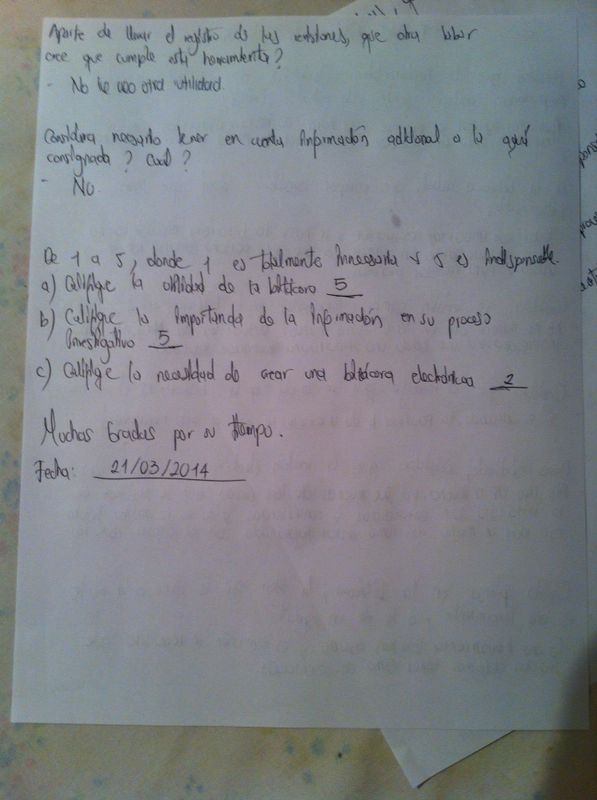 Aparte de llevar el registro de las versiones, que otra labor
cree que cumple esta herramienta?
- No le veo otra utilidad.
Considera necesario tener en cuenta información adicional a la aquí
consignada? Cual?
- No.
De 1 a 5, donde 1 es totalmente innecesaria y 5 es indispensable.
a) Califique la utilidad de la bitácora 5
b) Califique la importancia de la información en su proceso
investigativo 5
c) Califique la necesidad de crear una bitácora electrónica 2
Muchas Gracias por su tiempo.
Fecha: 21/03/2014